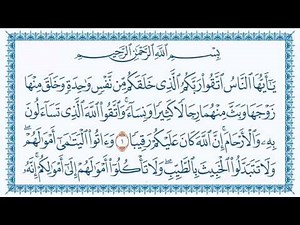 بِسْمِ اللَّهِ الرَّحْمَٰنِ الرَّحِيمِ
يَٰٓأَيُّهَا النَّاسُ اتَّقُوا۟ رَبَّكُمُ الَّذِى خَلَقَكُم مِّن نَّفْسٍ وَٰحِدَةٍ وَخَلَقَ مِنْهَا
زَوْجَهَا وَبَثَّ مِنْهُمَا رِجَالًا كَثِيرًا وَنِسَآءً ۚ وَاتَّقُوا۟ اللَّهَ الَّذِى تَسَآءَلُونَ
بِهِۦ وَالْأَرْحَامَ ۚ إِنَّ اللَّهَ كَانَ عَلَيْكُمْ رَقِيبًا ١ وَءَاتُوا۟ الْيَتَٰمَىٰٓ أَمْوَٰلَهُمْ ۖ
وَلَا تَتَبَدَّلُوا۟ الْخَبِيثَ بِالطَّيِّبِ ۖ وَلَا تَأْكُلُوٓا۟ أَمْوَٰلَهُمْ إِلَىٰٓ أَمْوَٰلِكُمْ ۚ إِنَّهُۥ